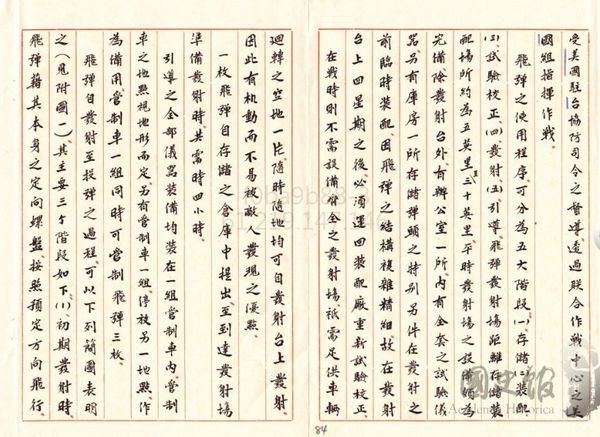 受美國駐台協防司令之督導透過聯合作戰中心之送
國組指揮作戰
飛彈之使用程序可分為五大階段(一)存儲(二)裝配
(三)試驗校正(四)發射(五)引導飛彈發射場距離存儲裝
配場所約為五英里至三十英里平時發射場之設備頗為
完備除發射台外有辦公室一所內有全套之試驗儀
器另有庫房一所存儲彈頭之特別另件在發射之
前臨時裝配因飛彈之結構複雜精細故在發射
台上四星期之後必須運回裝配廠重新試驗校正
在戰時則不需設備併全之發射場祇需足供車輛
84
迴轉之空地一片隨時隨地均可自發射台上發射
因此有机動而不易被敵人發現之優點
一枚飛彈自存儲之倉庫中提出至到達發射場
準備發射時共需時四小時
引導之全部儀器裝備均裝在一組管制車內管制
車之地點視地形而定另有管制車一組停放另一地點作
為備用管制車一組同時可管制飛彈三枚
飛彈自發射至投彈之過程可以下列簡圖表明
之(見附圖一)其主要三个階段如下(1)初期發射時
飛彈藉其本身之定向螺盤按照預定方向飛行
國史館
Academia Historica